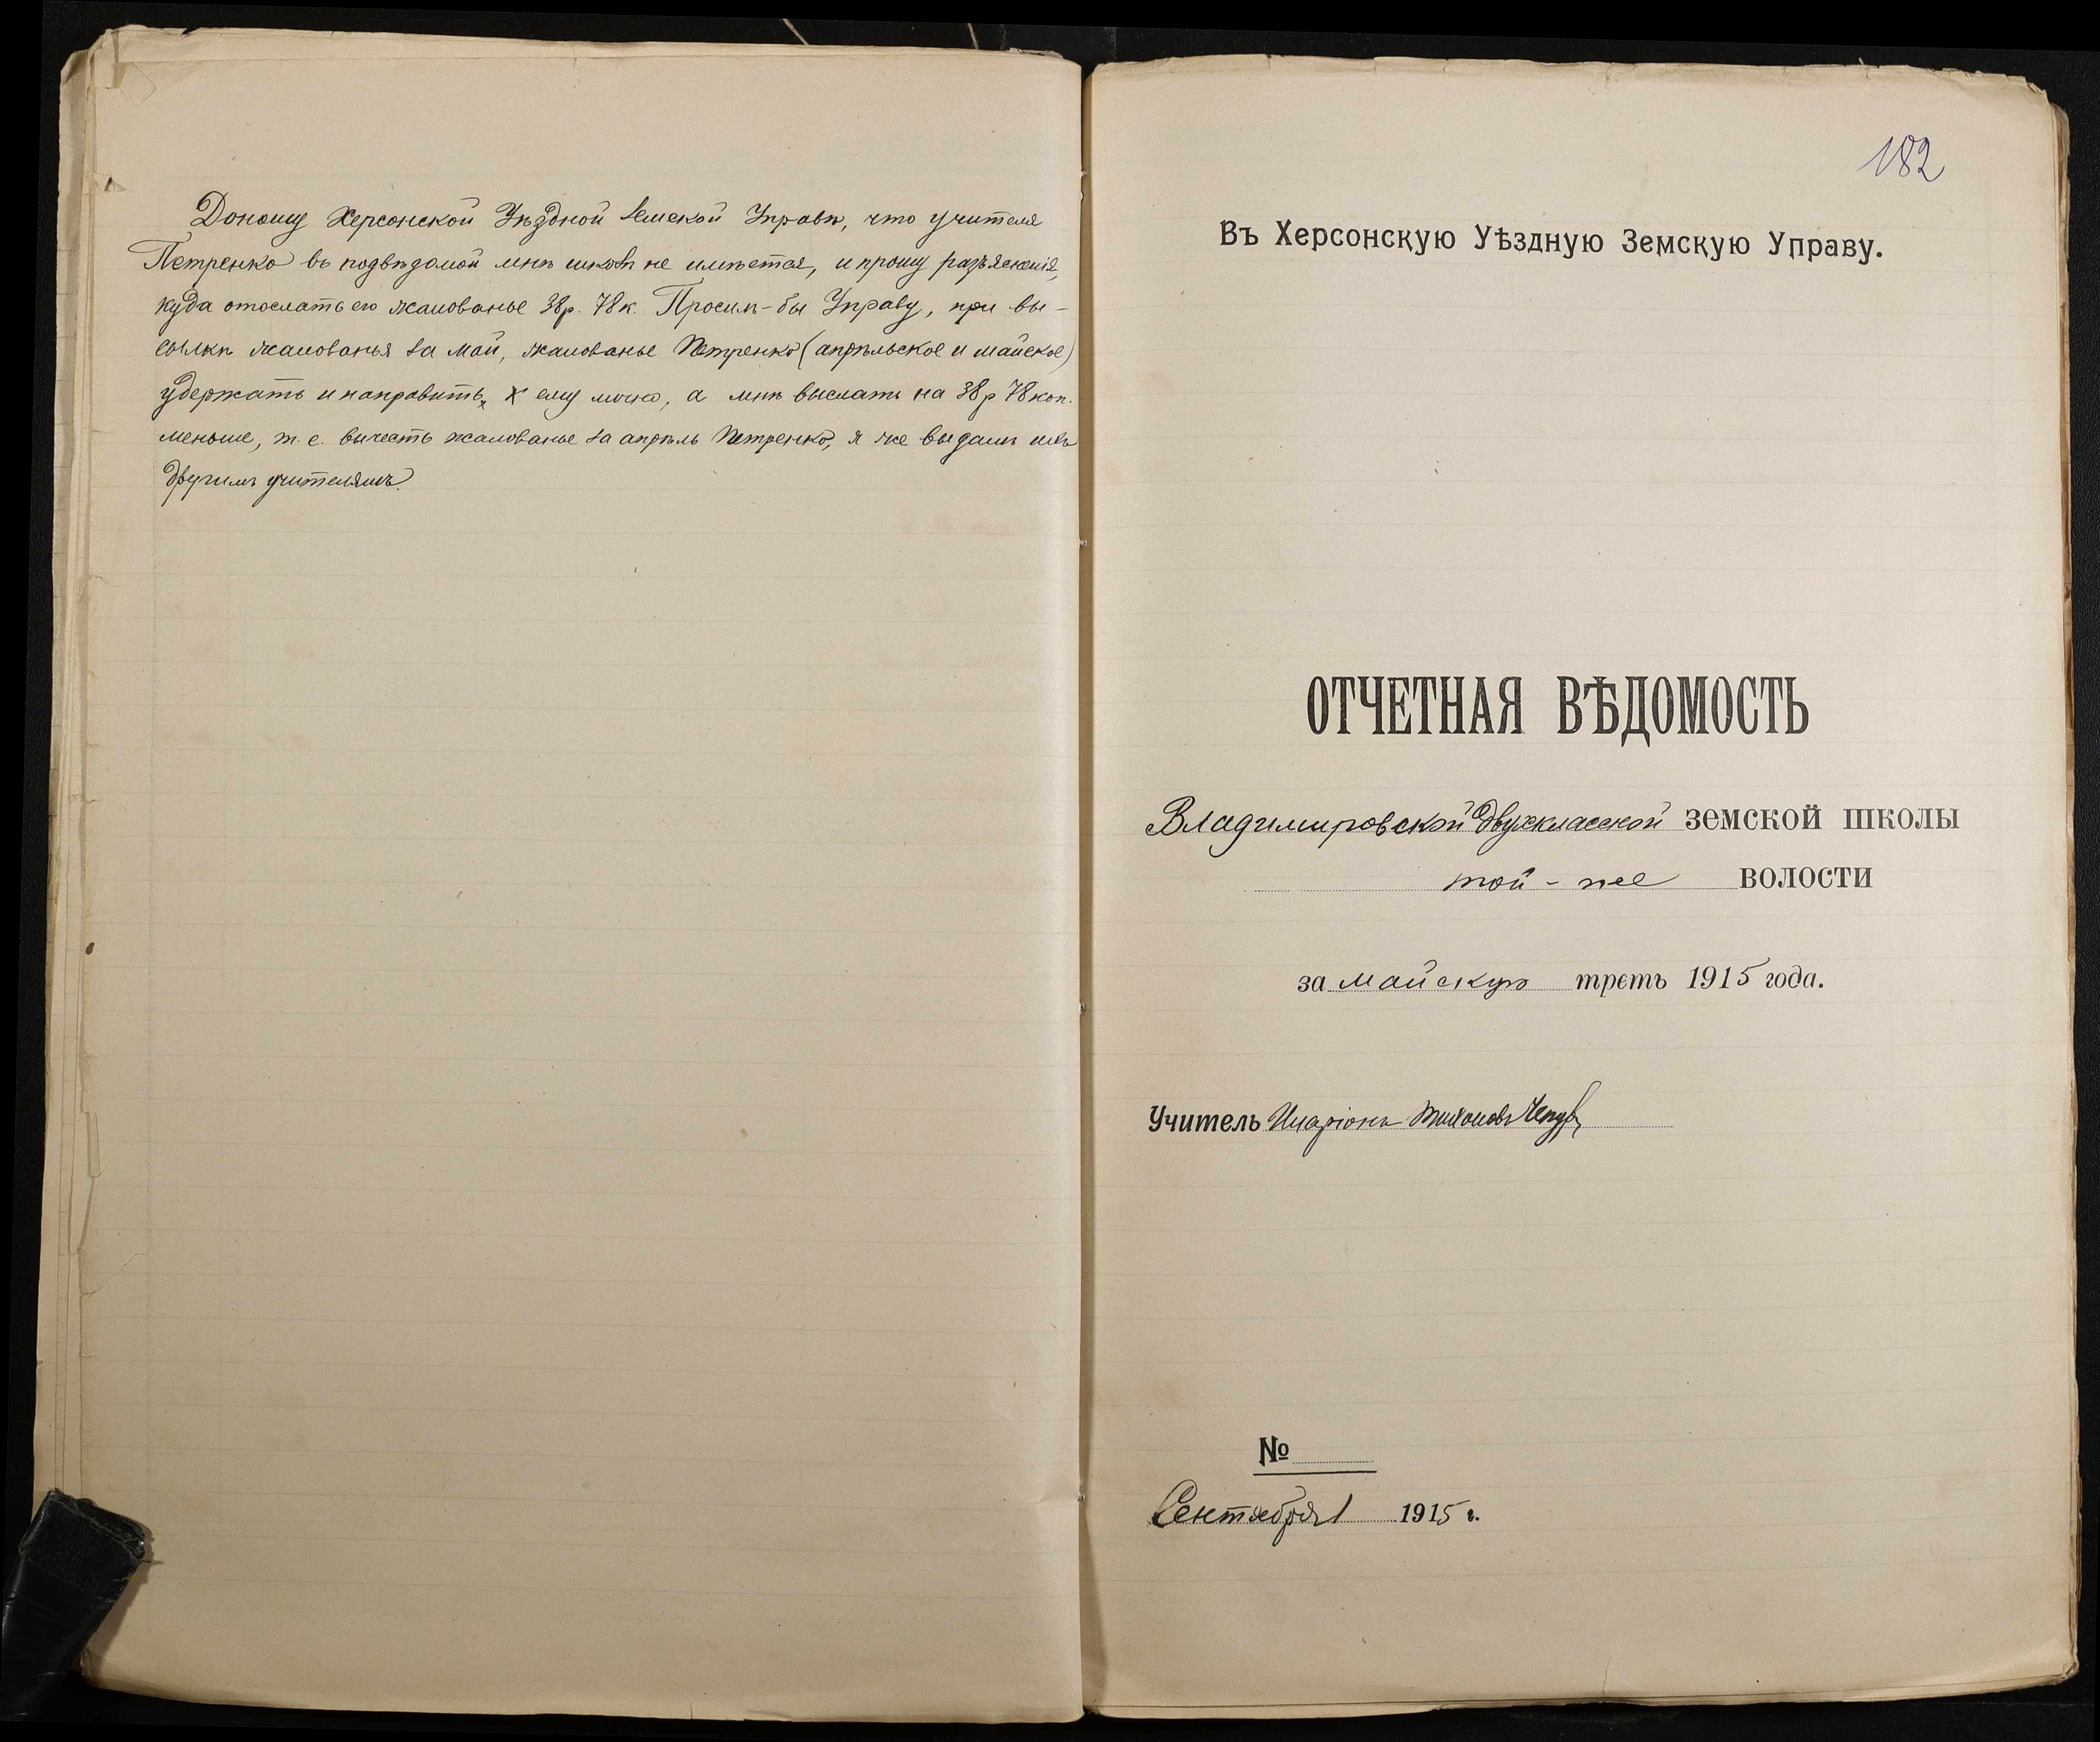 Доношу Херсонской Уѣздной Земской Управѣ, что учителя
Петренко въ подвѣдомой мнѣ школѣ не имѣется, и прошу разъясненія,
куда отослать его жалованье 38р. 78к. Просилъ-бы Управу, при вы-
сылкѣ жалованья за май, жалованье Петренко (апрѣльское и майское)
удержать и направить ему лично, а мнѣ выслать на 38р 78коп.
меньше, т. е. вычесть жалованье за апрѣль Петренко, я же выдамъ
другимъ учителямъ.
182
Въ Херсонскую Уѣздную Земскую Управу.
ОТЧЕТНАЯ ВѢДОМОСТЬ
Владимировской двухклассной земской школы
той-же волости
за майскую треть 1915 года.
Учитель Иларіонъ
№
Сентября 1 1915 г.